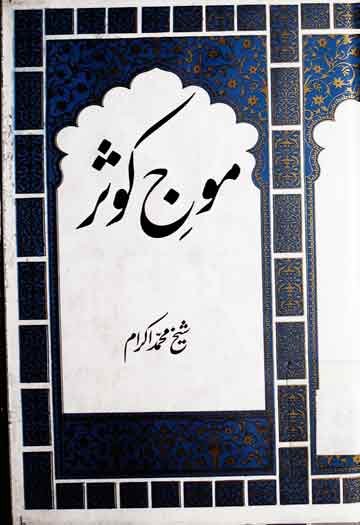 موجِ کوثر
شیخ محمد اکرام